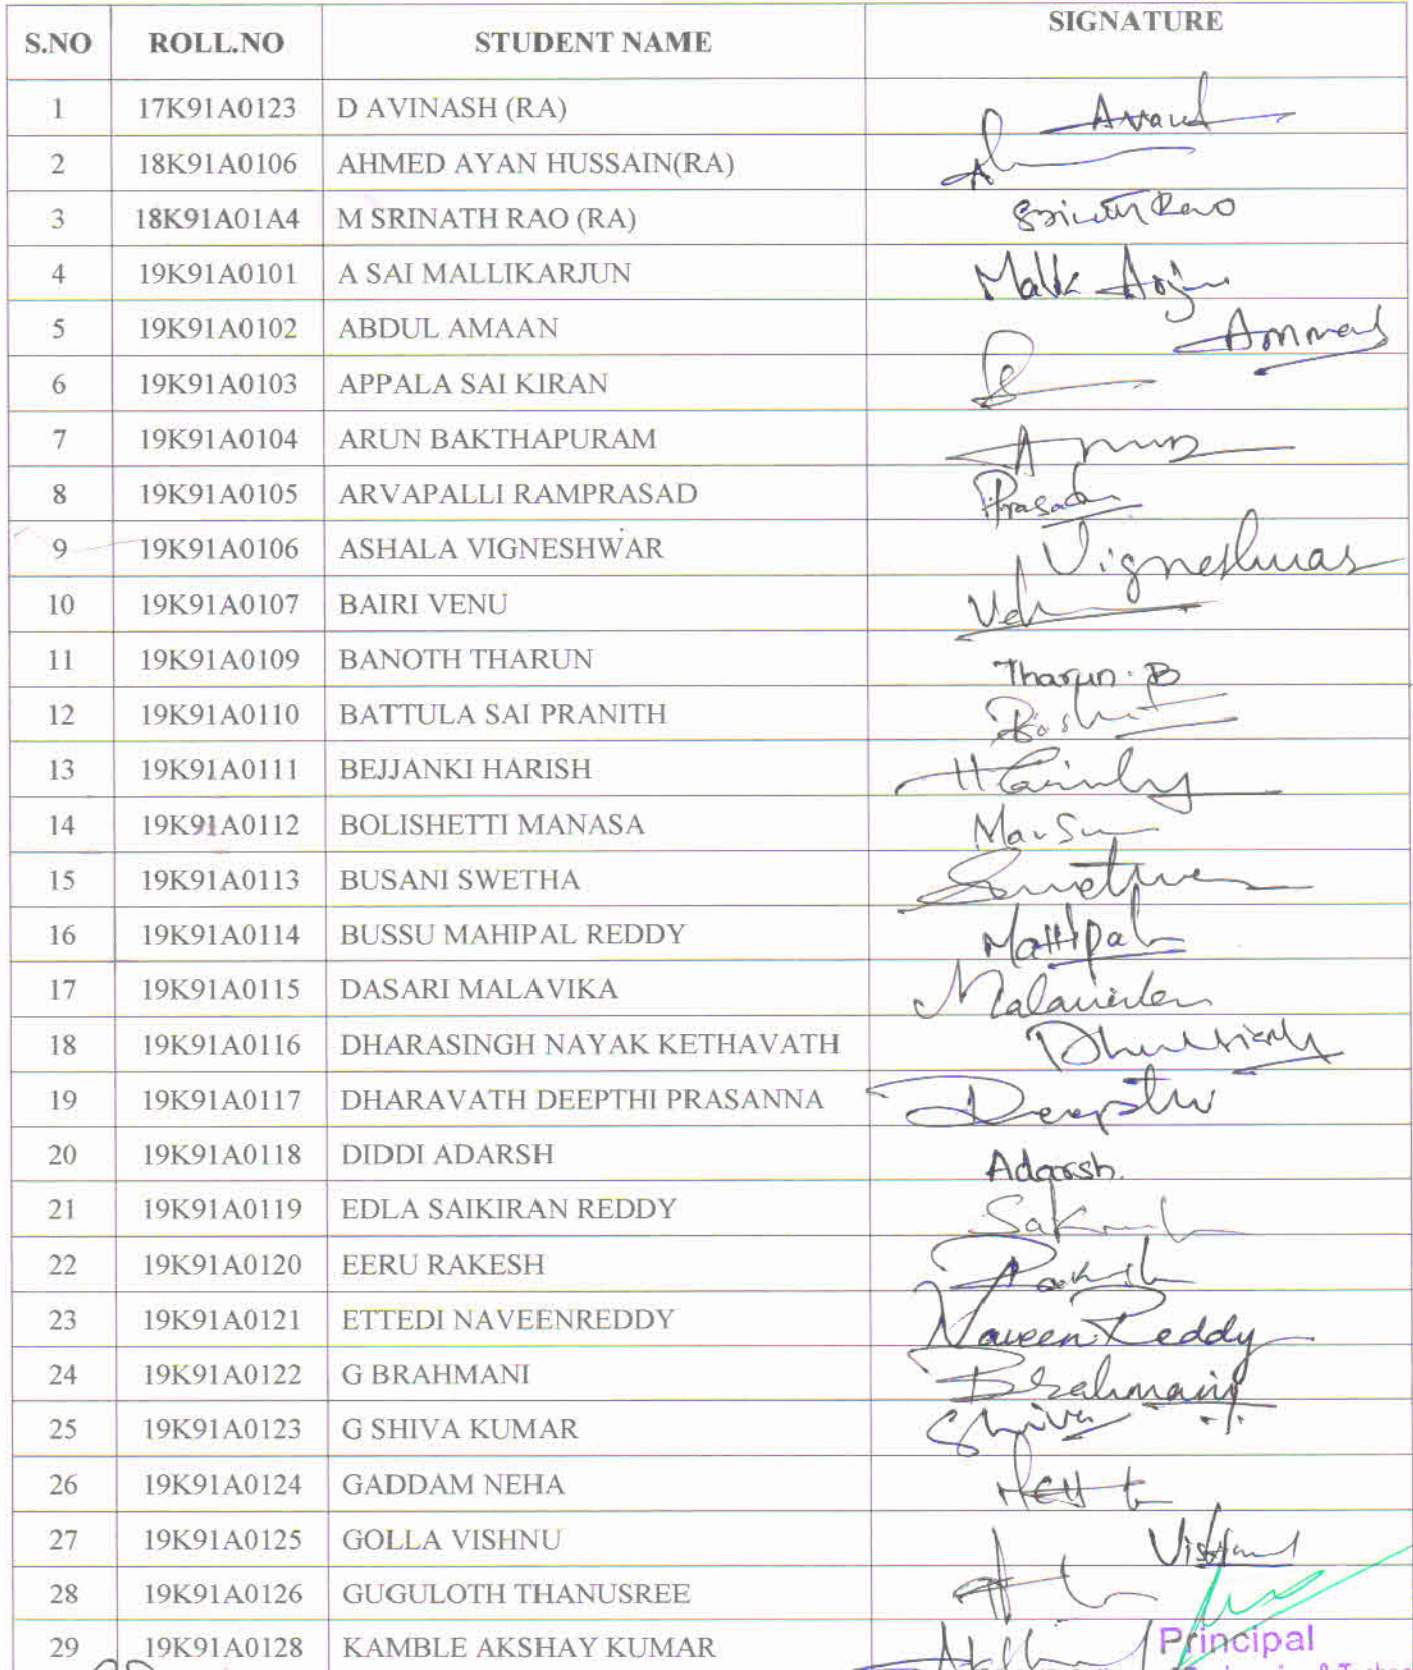 S.NO ROLL.NO STUDENT NAME SIGNATURE
1 17K91A0123 D AVINASH (RA)
2 18K91A0106 AHMED AYAN HUSSAIN(RA)
3 18K91A01A4 M SRINATH RAO (RA)
4 19K91A0101 A SAI MALLIKARJUN
5 19K91A0102 ABDUL AMAAN
6 19K91A0103 APPALA SAI KIRAN
7 19K91A0104 ARUN BAKTHAPURAM
8 19K91A0105 ARVAPALLI RAMPRASAD Prasad
9 19K91A0106 ASHALA VIGNESHWAR Vigneshwar
10 19K91A0107 BAIRI VENU
11 19K91A0109 BANOTH THARUN Tharun. B
12 19K91A0110 BATTULA SAI PRANITH
13 19K91A0111 BEJJANKI HARISH
14 19K91A0112 BOLISHETTI MANASA
15 19K91A0113 BUSANI SWETHA
16 19K91A0114 BUSSU MAHIPAL REDDY Mahipal
17 19K91A0115 DASARI MALAVIKA
18 19K91A0116 DHARASINGH NAYAK KETHAVATH
19 19K91A0117 DHARAVATH DEEPTHI PRASANNA Deepthi
20 19K91A0118 DIDDI ADARSH Adarsh.
21 19K91A0119 EDLA SAIKIRAN REDDY
22 19K91A0120 EERU RAKESH
23 19K91A0121 ETTEDI NAVEENREDDY Naveen Reddy
24 19K91A0122 G BRAHMANI Brahmani
25 19K91A0123 G SHIVA KUMAR Shiva
26 19K91A0124 GADDAM NEHA
27 19K91A0125 GOLLA VISHNU
28 19K91A0126 GUGULOTH THANUSREE
29 19K91A0128 KAMBLE AKSHAY KUMAR
Principal